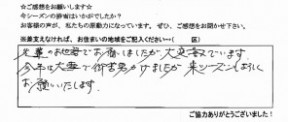 ☆ご感想をお願いします☆
今シーズンの除雪はいかがでしたか?
お客様の声が、私たちの原動力になっています。ぜひ、ご感想をお聞かせ下さい。
※差支えなければ、お住まいの地域をご記入ください→( 区)
でお願いしましたが大変喜んでいます。
今年は大雪で御苦労かけましたが来シーズンもよろしく
お願いいたします。
ご協力ありがとうございました!